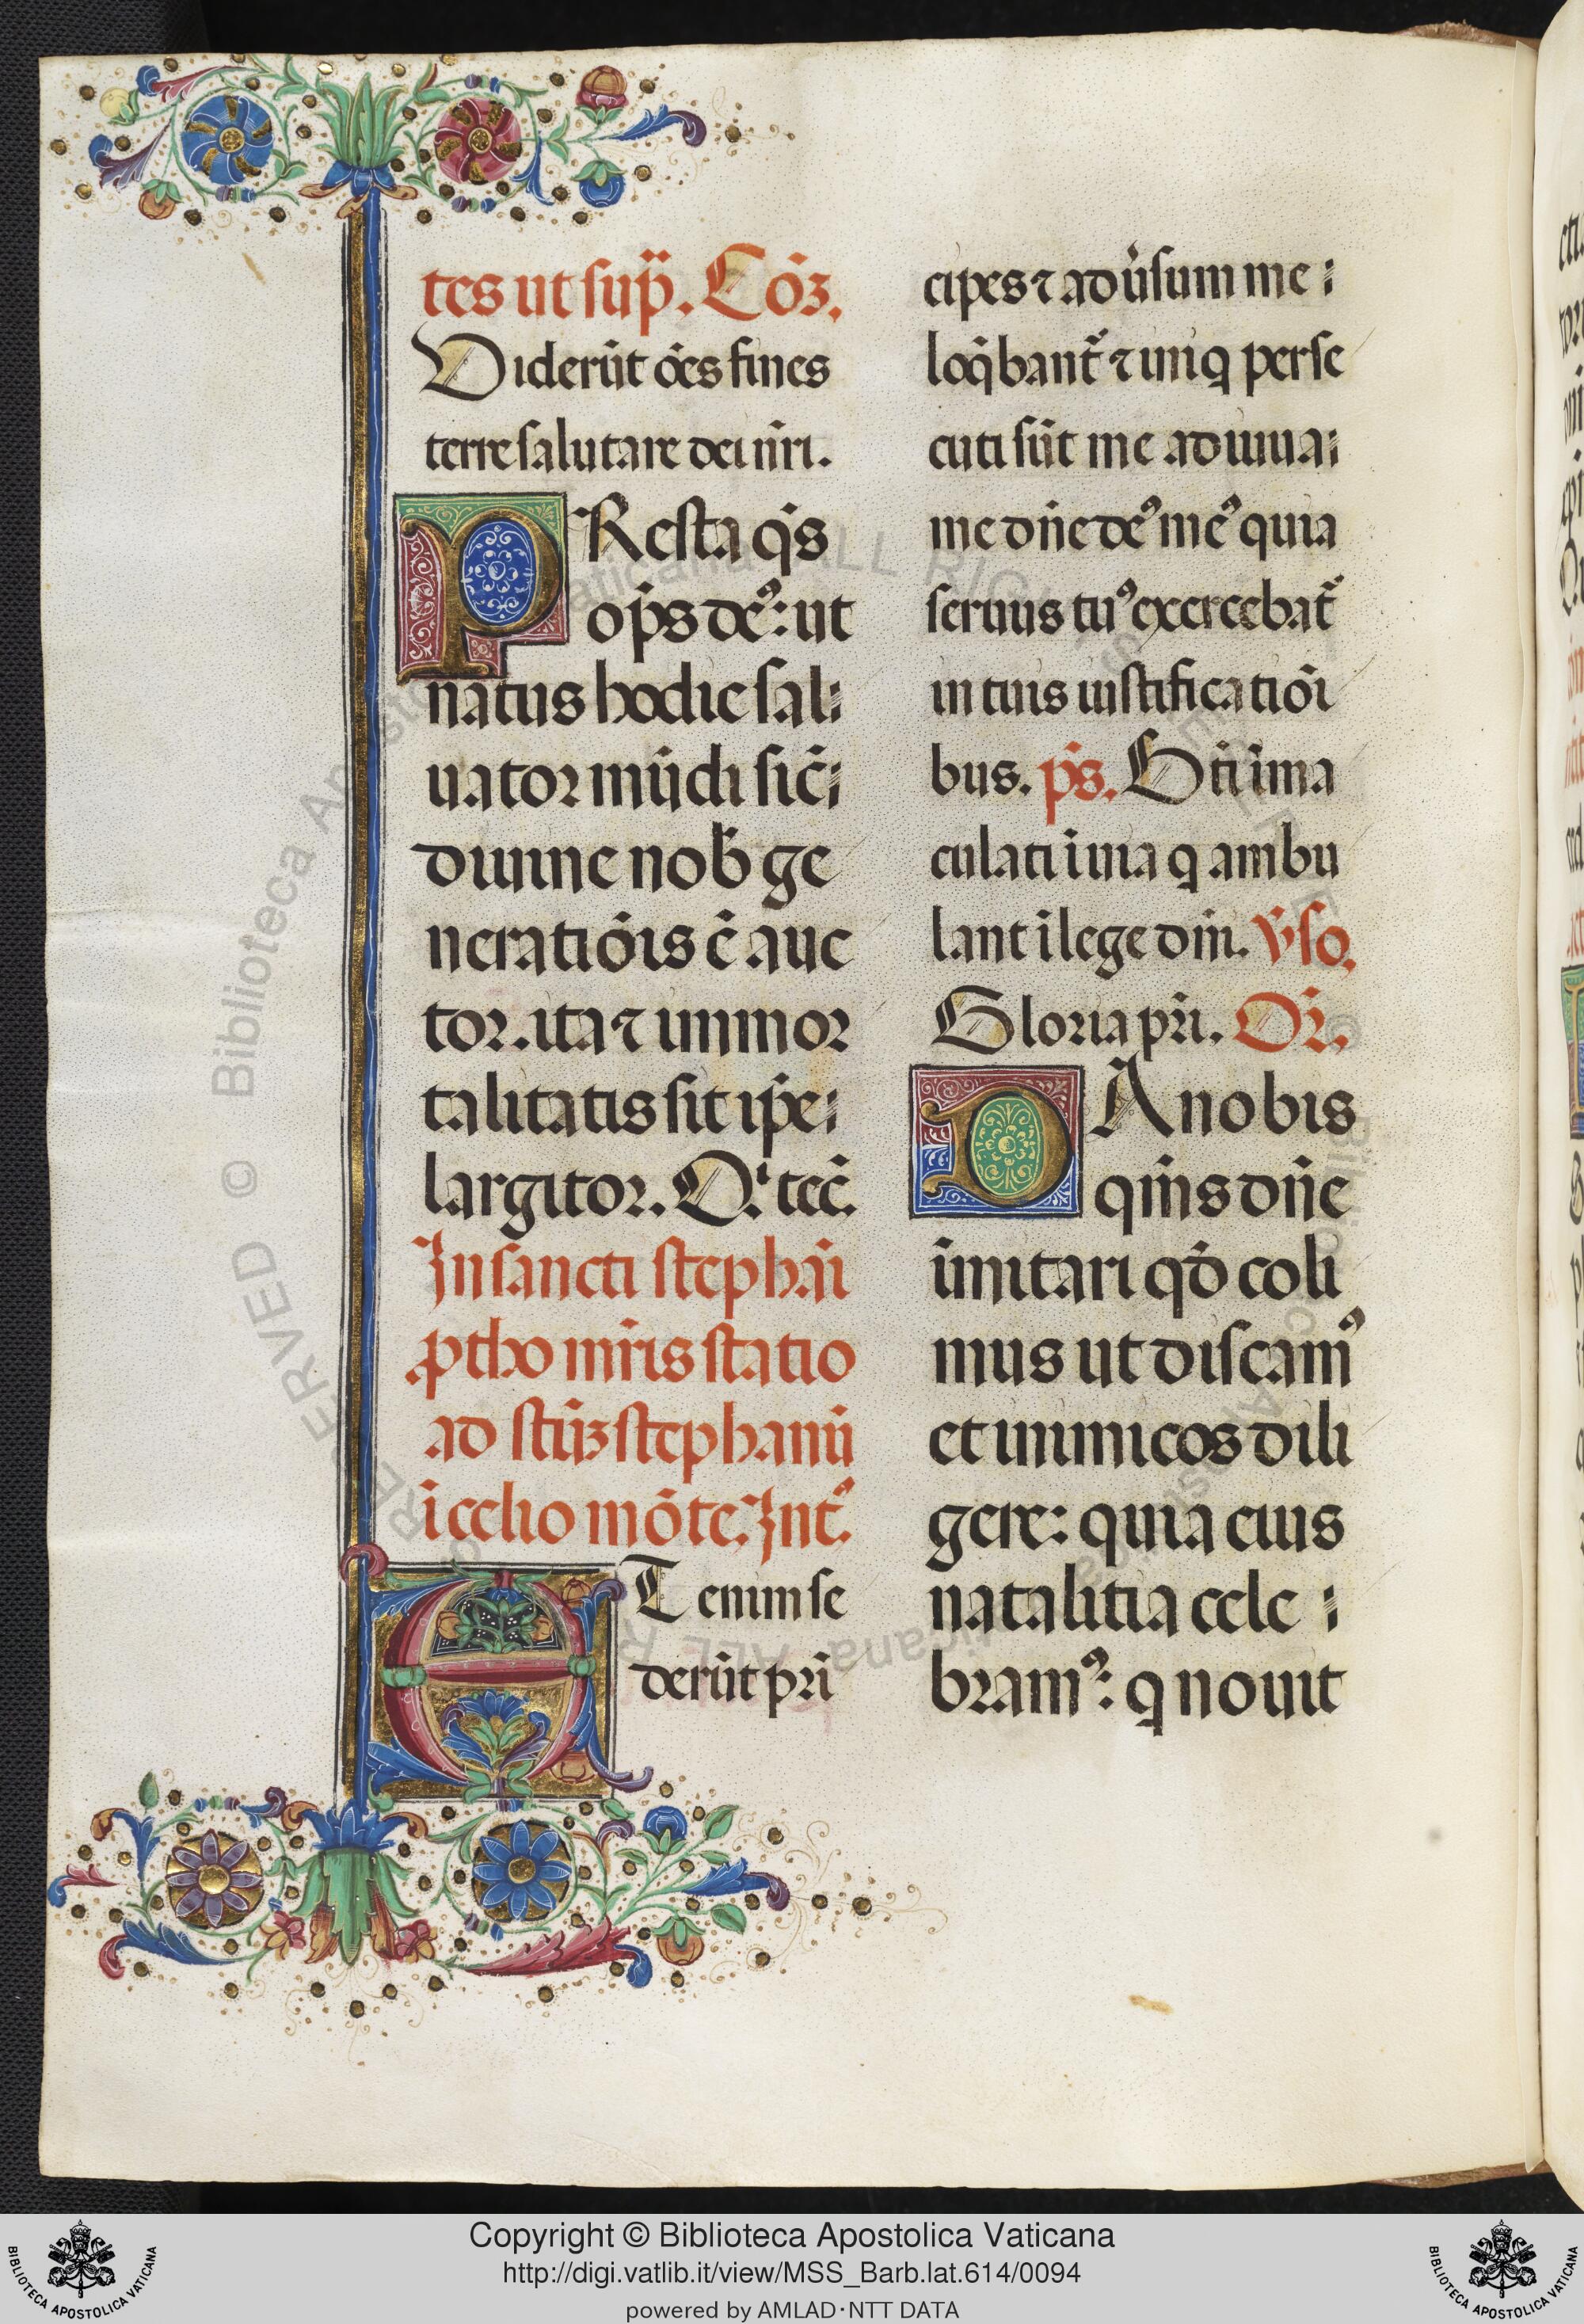 tes ut sup̄. Cōꝫ.
Viderūt ōēs fines
terre salutare dei nr̄i.
PResta qs̄
op̄s deꝰ: ut
natus hodie sal⸗
uator mūdi sic̄⸗
diuine nob̄ ge
neratiōis ē auc
tor. ita ⁊ immor
talitatis sit ip̄e⸗
largitor. Q. tec̄.
In sancti stephāi
ꝓtho mr̄is statio
ad st̄ūꝫ stephanū
ī celio mōte. Int̄.
ET enim se
derūt pri
cipes ⁊ adūsum me⸗
loq̄bant̄ ⁊ iniq perse
cuti sūt me adiuua⸗
me dn̄e deꝰ meꝰ quia
seruus tuꝰ exercebat̄
in tuis iustificatiōi
bus. ps̄. Bt̄i īma
culati ī uia q ambu
lant ī lege dm̄. V̄ so.
Gloria pr̄i. Or̄.
DA nobis
qm̄s dn̄e
īmitari qđ coli
mus ut discamꝰ
et inimicos dili
gere: quia eius
natalitia cele⸗
bramꝰ: q nouit
Copyright © Biblioteca Apostolica Vaticana
http://digi.vatlib.it/view/MSS_Barb.lat.614/0094
powered by AMLAD·NTT DATA
BIBLIOTECA APOSTOLICA VATICANA
BIBLIOTECA APOSTOLICA VATICANA